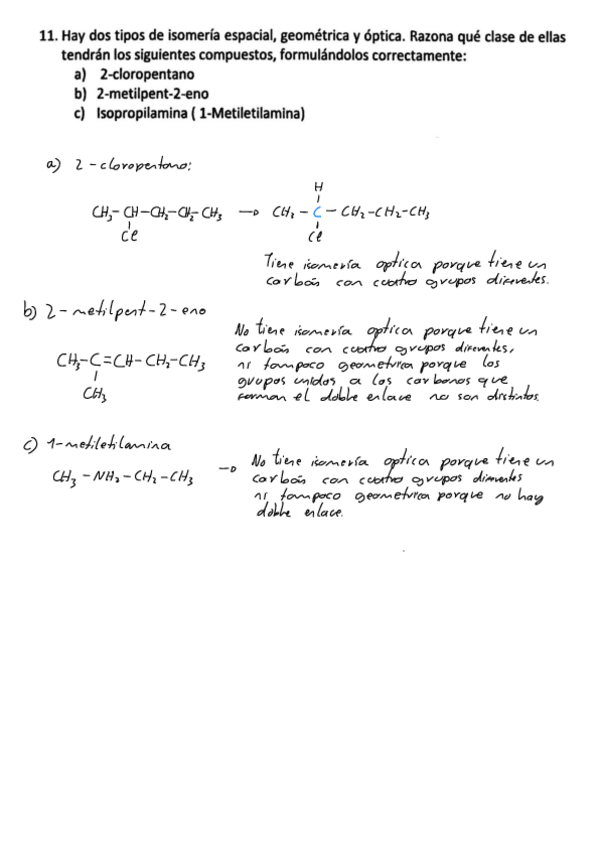 11. Hay dos tipos de isomería espacial, geométrica y óptica. Razona qué clase de ellas
tendrán los siguientes compuestos, formulándolos correctamente:
a) 2-cloropentano
b) 2-metilpent-2-eno
c) Isopropilamina ( 1-Metiletilamina)
a) 2-cloropentano:
H
CH₃-CH-CH₂-CH₂-CH₃ → CH₃-C-CH₂-CH₂-CH₃
Cl Cl
Tiene isomería optica porque tiene un
carbón con cuatro grupos diferentes.
b) 2-metilpent-2-eno
No tiene isomería optica porque tiene un
carbón con cuatro grupos diferentes,
CH₃-C=CH-CH₂-CH₃
CH₃
ni tampoco geometrica porque los
grupos unidos a los carbonos que
forman el doble enlace no son distintos.
c) 1-metiletilamina
CH₃-NH₂-CH₂-CH₃ → No tiene isomería optica porque tiene un
carbón con cuatro grupos diferentes
ni tampoco geometrica porque no hay
doble enlace.